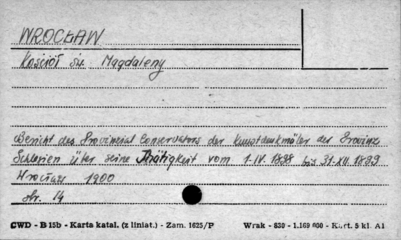 WROCŁAW
Kościół św. Magdaleny
Bericht des Provinzial Conservators der Kunstdenkmäler der Provinz
Schlesien über seine Thätigkeit vom 1.IV.1898 bis 31.XII.1899
Wrocław 1900
str. 14
CWD - B 15b - Karta katal. (z liniat.) - Zam. 1625/P Wrak - 830 - 1.169 600 - Kart. 5 kl. A1